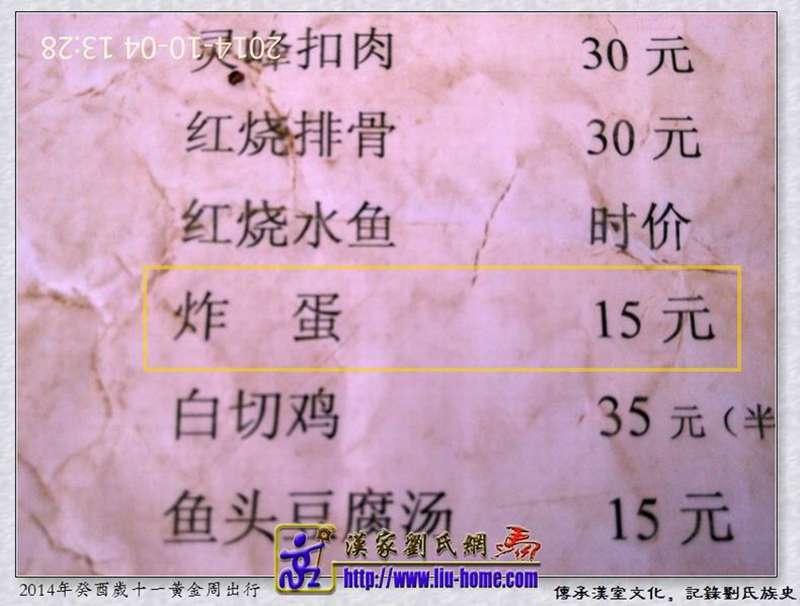 2014-10-04 13:28
灵峰扣肉 30 元
红烧排骨 30 元
红烧水鱼 时价
炸 蛋 15 元
白切鸡 35 元（半
鱼头豆腐汤 15 元
漢家劉氏網
http://www.liu-home.com
2014年癸酉歲十一黃金周出行
傳承漢室文化。記錄劉氏族史